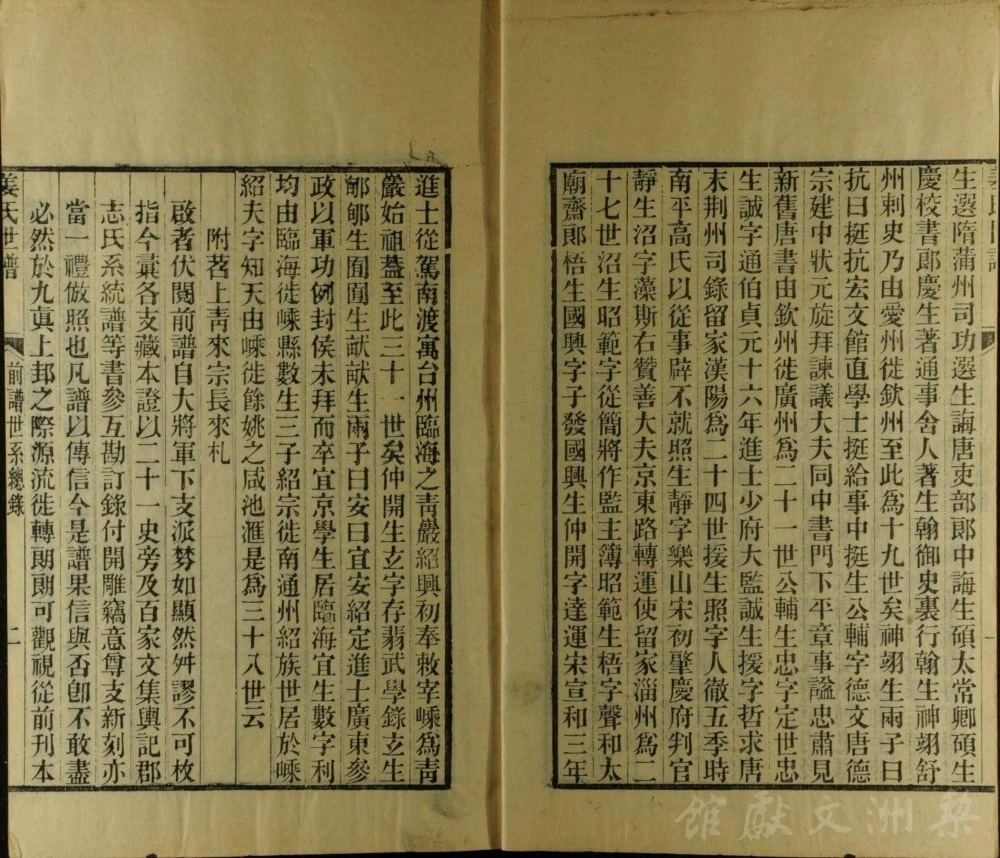 生選隋蒲州司功選生誨唐吏部郎中誨生碩太常卿碩生
慶校書郎慶生著通事舍人著生翰御史裏行翰生神翊舒
州刺史乃由愛州徙欽州至此爲十九世矣神翊生兩子曰
抗曰挺抗宏文館直學士挺給事中挺生公輔字德文唐德
宗建中狀元旋拜諫議大夫同中書門下平章事謚忠肅見
新舊唐書由欽州徙廣州爲二十一世公輔生忠字定世忠
生誠字通伯貞元十六年進士少府大監誠生援字哲求唐
末荆州司錄留家漢陽爲二十四世援生照字人徹五季時
南平高氏以從事辟不就照生靜字樂山宋初肇慶府判官
靜生沼字藻斯右贊善大夫京東路轉運使留家淄州爲二
十七世沼生昭範字從簡將作監主簿昭範生梧字聲和太
廟齋郎梧生國興字子發國興生仲開字達運宋宣和三年
進士從駕南渡寓台州臨海之靑嚴紹興初奉敕宰嵊爲靑
嚴始祖蓋至此三十一世矣仲開生玄字存翡武學錄玄生
邮邮生囿囿生献献生兩子曰安曰宜安紹定進士廣東參
政以軍功例封侯未拜而卒宜京學生居臨海宜生數字利
均由臨海徙嵊縣數生三子紹宗徙南通州紹族世居於嵊
紹夫字知天由嵊徙餘姚之咸池滙是爲三十八世云
附苕上靑來宗長來札
啟者伏閱前譜自大將軍下支派棼如顯然舛謬不可枚
指今彚各支藏本證以二十一史旁及百家文集輿記郡
志氏系統譜等書參互勘訂錄付開雕竊意尊支新刻亦
當一禮倣照也凡譜以傳信今是譜果信與否卽不敢盡
必然於九眞上邽之際源流徙轉朗朗可觀視從前刊本
姜氏世譜
前譜世系總錄
二
梨洲文獻館